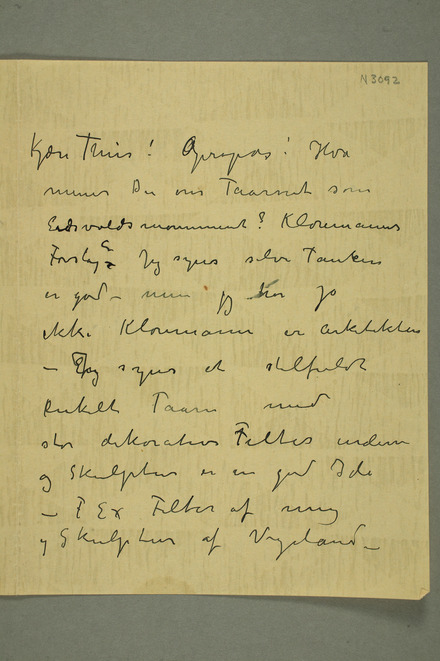 N 3092
Kjære Thiis! Apropos! Hva
mener Du om Taarnet som
Eidsvoldsmonument? Kloumanns
Forslag Jeg synes selve Tanken
er god – men jeg jo
ikke Kloumann er arkitekten
– Jeg synes et stilfuldt
enkelt Taarn med
stor dekorative Felter indeni
og Skulptur er en god Ide
– F Ex Felter af mig
og Skulptur af Vigeland –